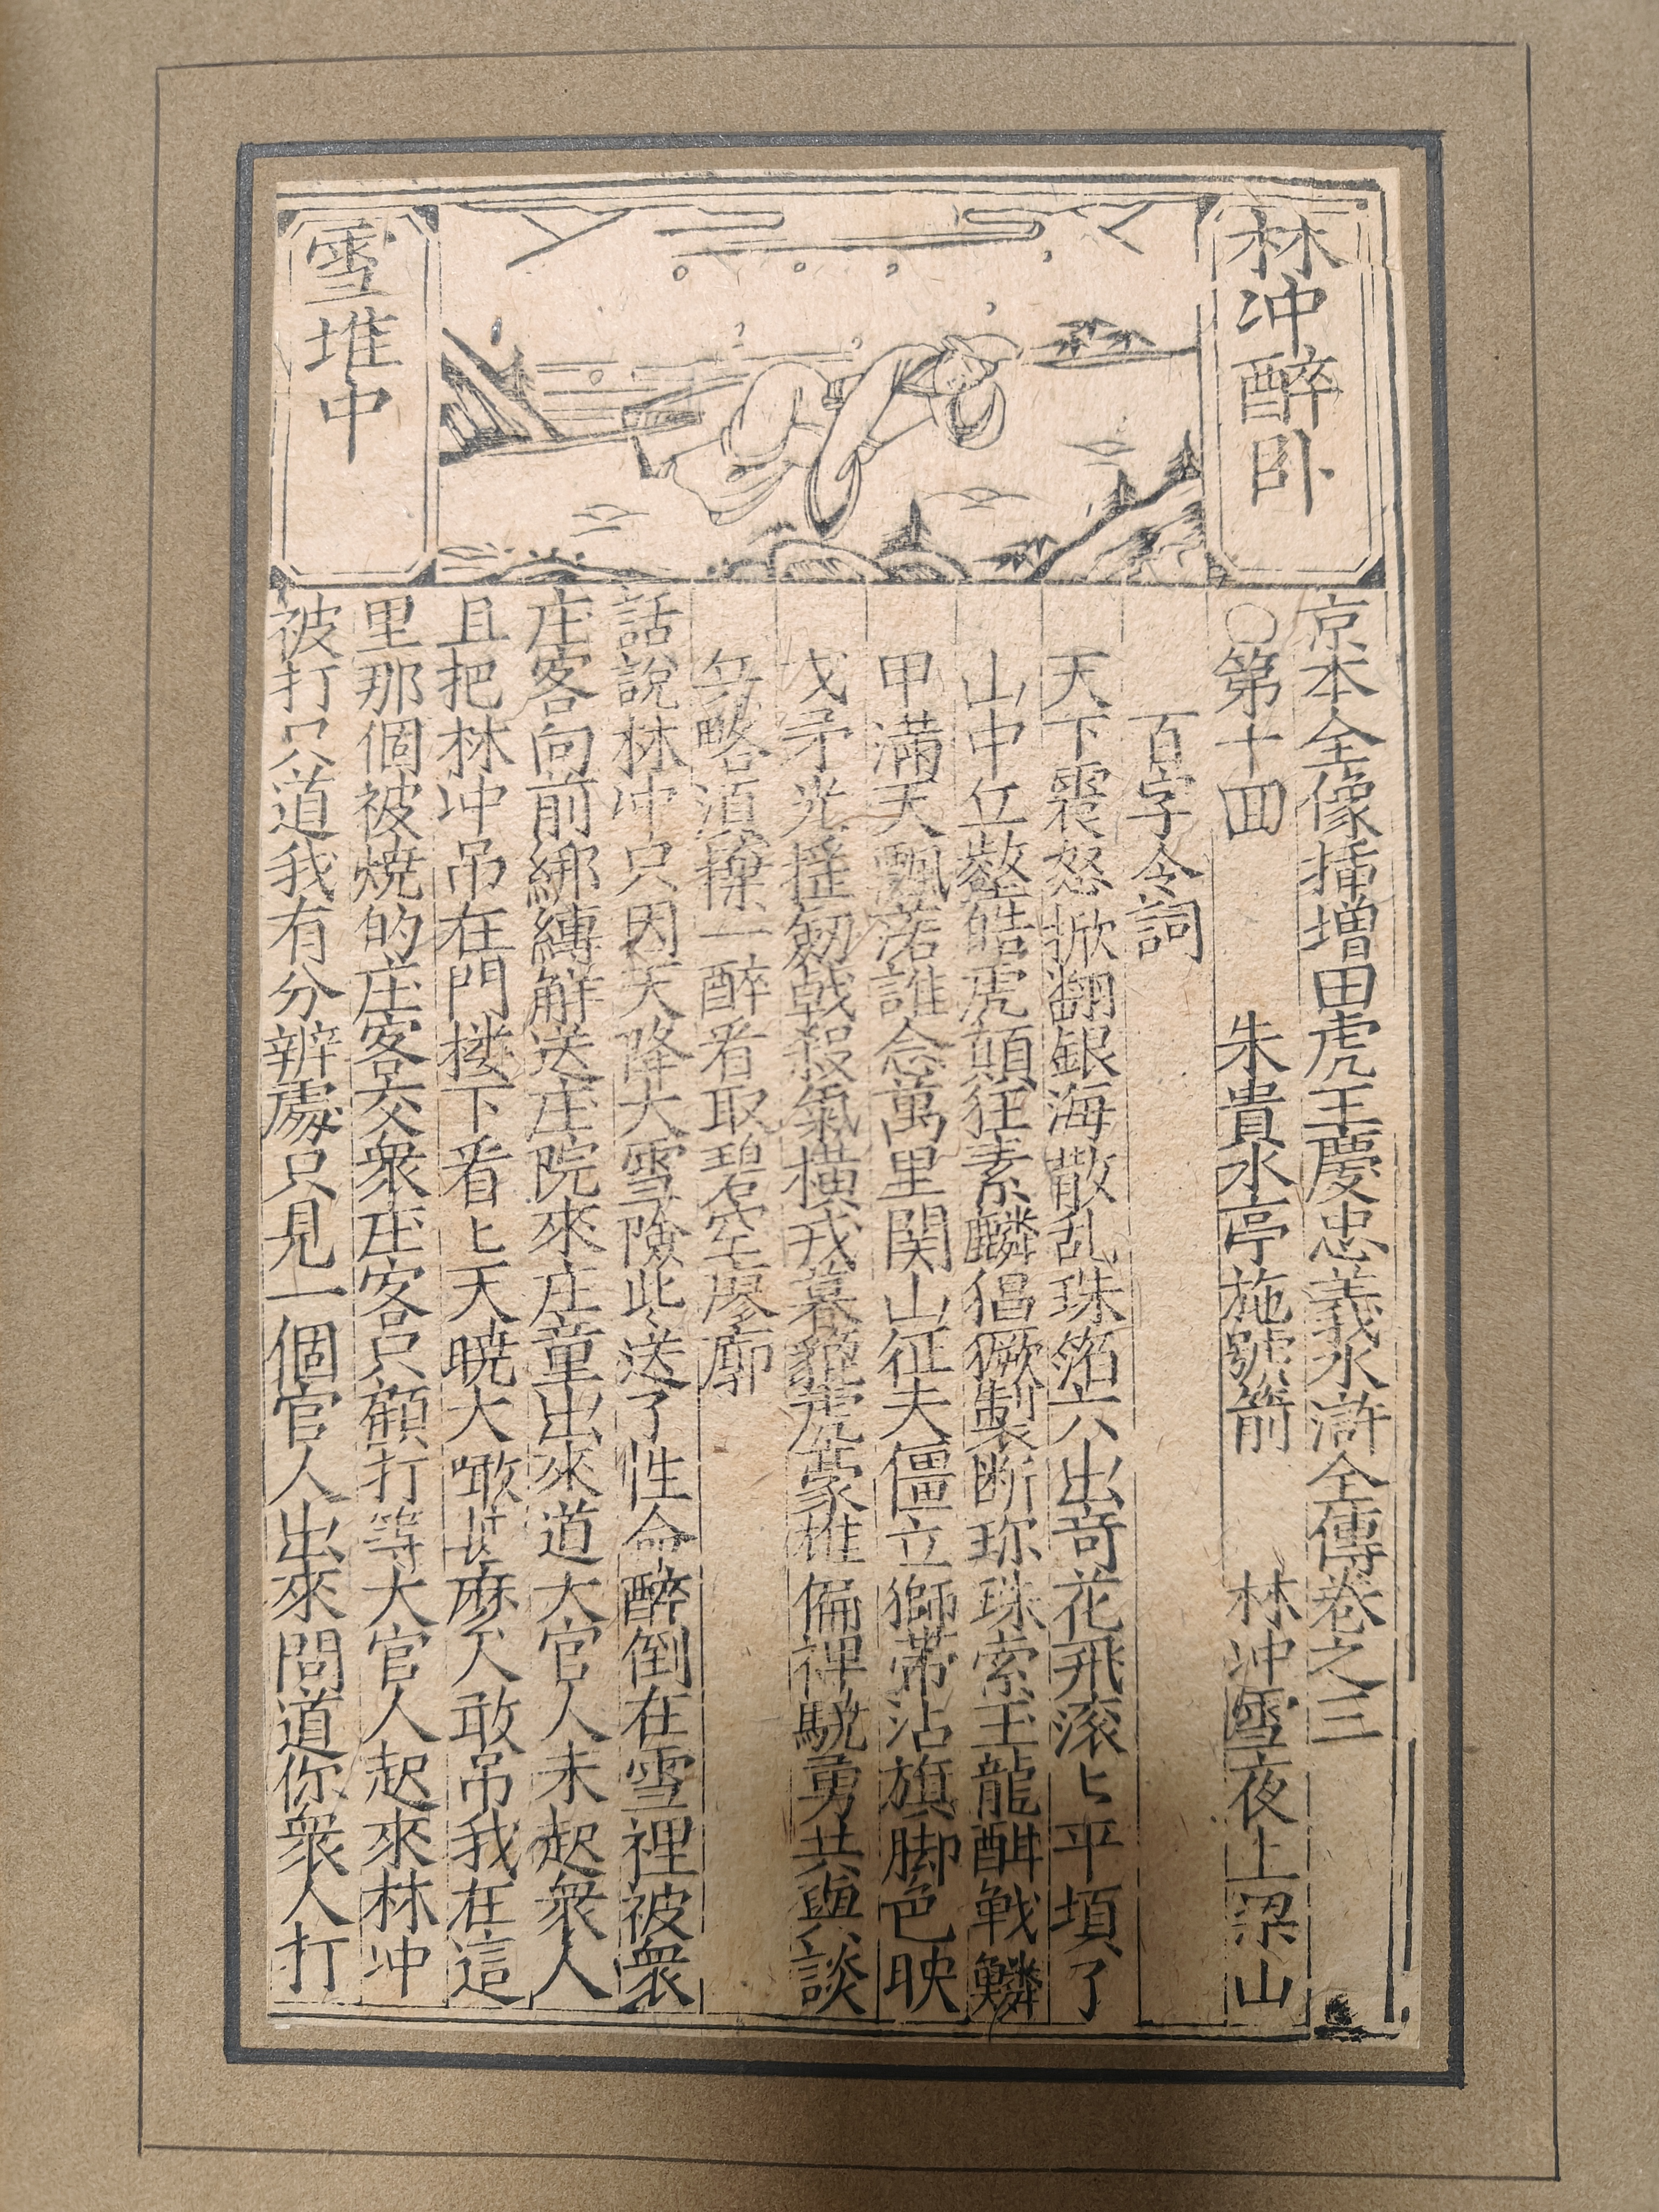 林冲醉卧
雪堆中
京本全像插增田虎王慶忠義水滸全傳卷之三
〇第十回 朱貴水亭施號箭 林冲雪夜上梁山
百字令詞
天下震怒掀翻銀海散乱珠箔六出奇花飛滚〻平填了
山中丘壑皓虎顛狂素麟猖獗製断珎珠索玉龍酣戦鱗
甲滿天飄落誰念萬里関山征夫僵立獅帯沾旗脚色映
戈矛光摇劒戟殺氣橫戎幕貔虎豪雄偏裨驍勇共與談
兵略須拚一醉看取碧空廖廓
話說林冲只因天降大雪險此送了性命醉倒在雪裡被衆
庄客向前綁縛解送庄院來庄童出來道大官人未起衆人
且把林冲吊在門楼下看〻天曉大噉甚麽人敢吊我在這
里那個被燒的庄客交衆庄客只顧打等大官人起來林冲
被打只道我有分辨處只見一個官人出來問道你衆人打